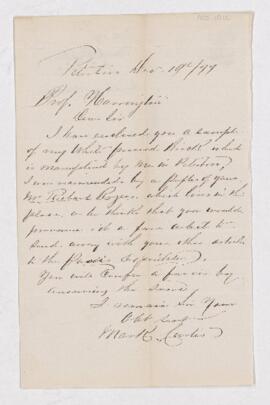 Dec 19th/77
Prof. Harrington
Dear Sir
I have enclosed you a sample
of my White pressed Brick which
is manufactured by me in
I was recommended by a pupil of yours
Mr Richard Rogers, which lives in this
place, as he thinks that you would
pronounce it a fair article to
send away with your other articles
to the Paris Exposition
You will Confer a favor by
answering the Same
I remain Sir Your
Obt Serv
Mark